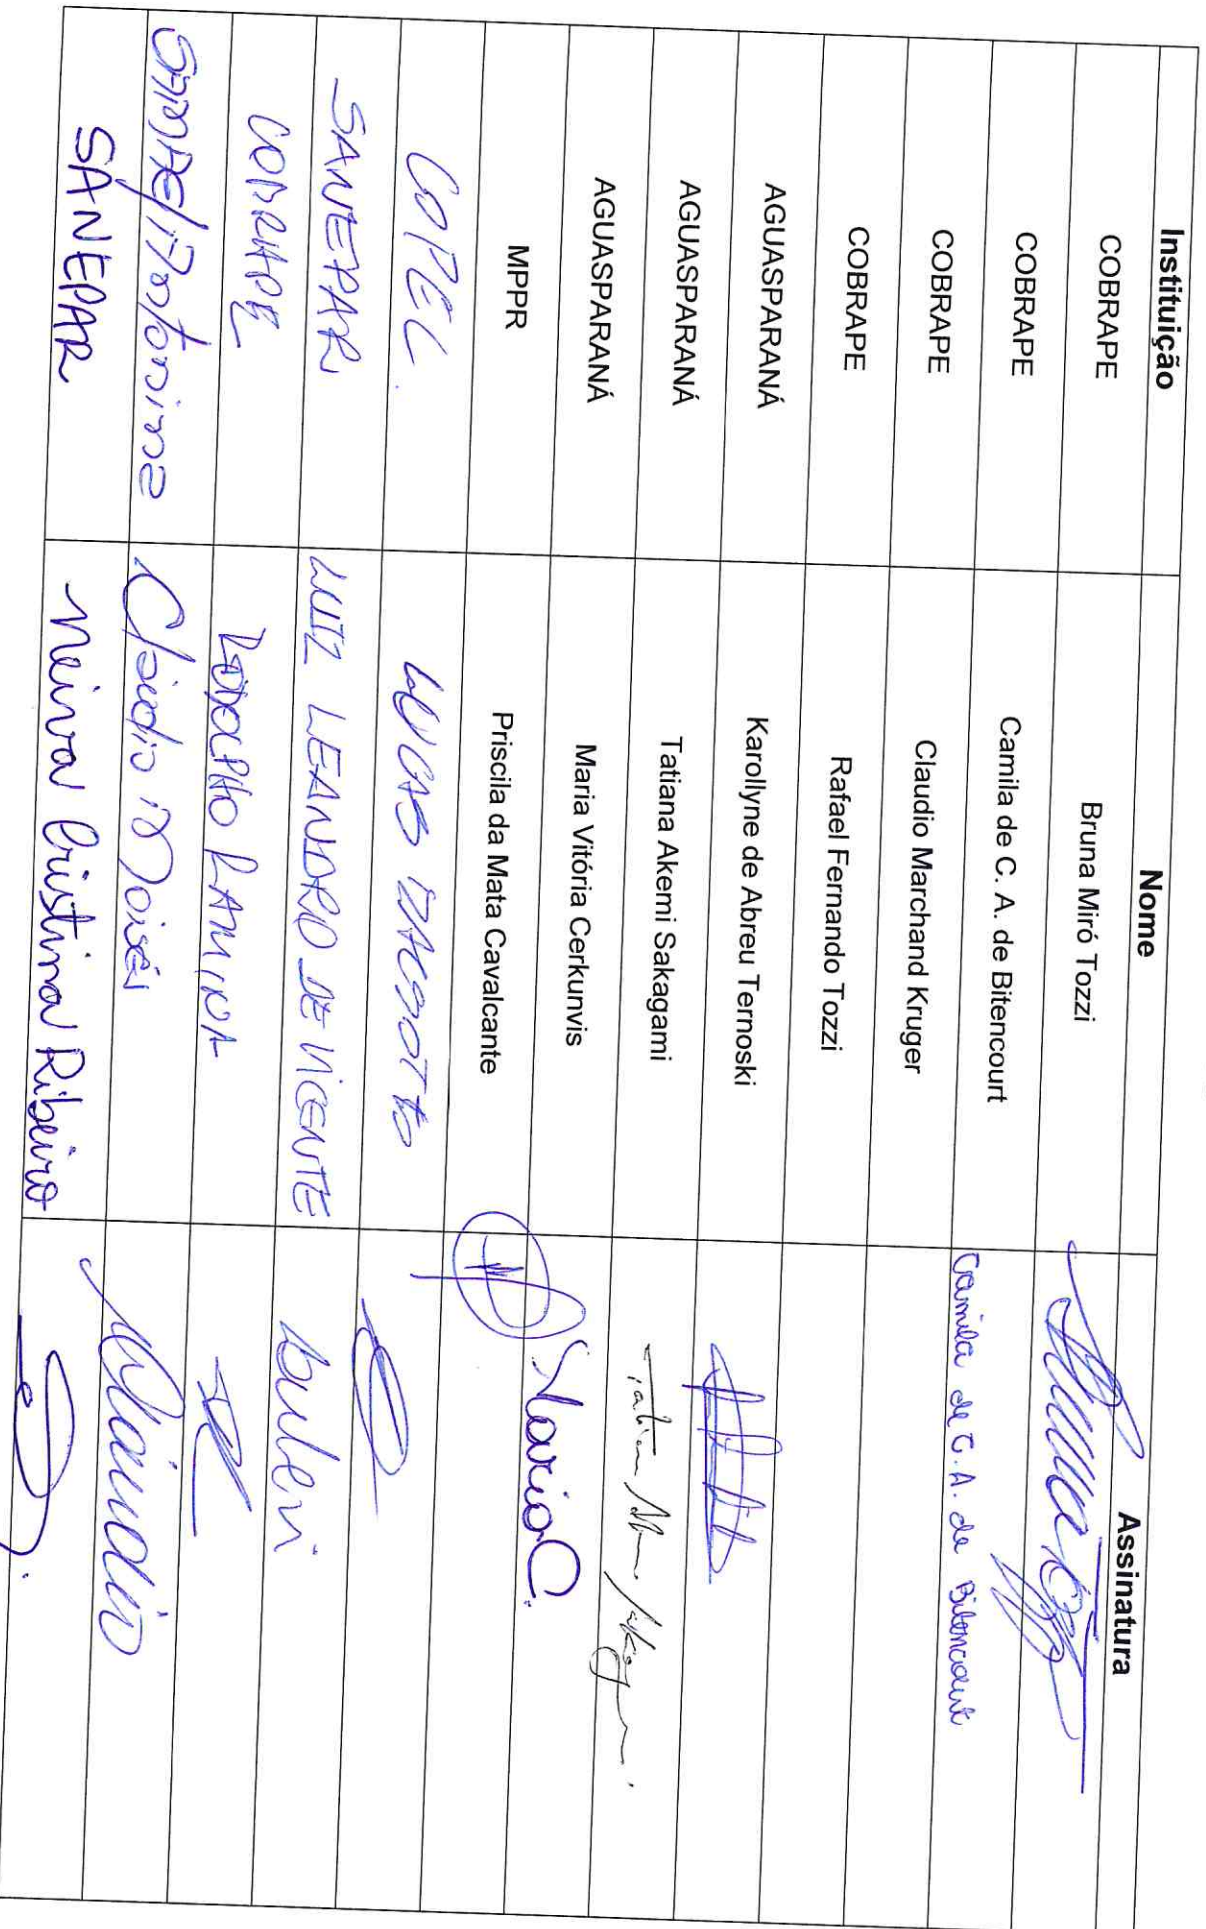 Instituição Nome Assinatura
COBRAPE Bruna Miró Tozzi
COBRAPE Camila de C. A. de Bitencourt Camila de C. A. de Bitencourt
COBRAPE Claudio Marchand Kruger
COBRAPE Rafael Fernando Tozzi
AGUASPARANÁ Karollyne de Abreu Ternoski
AGUASPARANÁ Tatiana Akemi Sakagami
AGUASPARANÁ Maria Vitória Cerkunvis Maria C.
MPPR Priscila da Mata Cavalcante
COPEL LUCAS
SANEPAR LUIZ LEANDRO DE VICENTE
COBRAPE RODOLPHO RAMINA
Claudio Moisés
SANEPAR Neiva Cristina Ribeiro